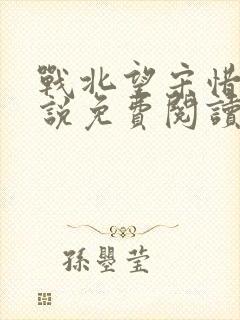 戰北望宋惜
說免費閱讀
孫曌瑩